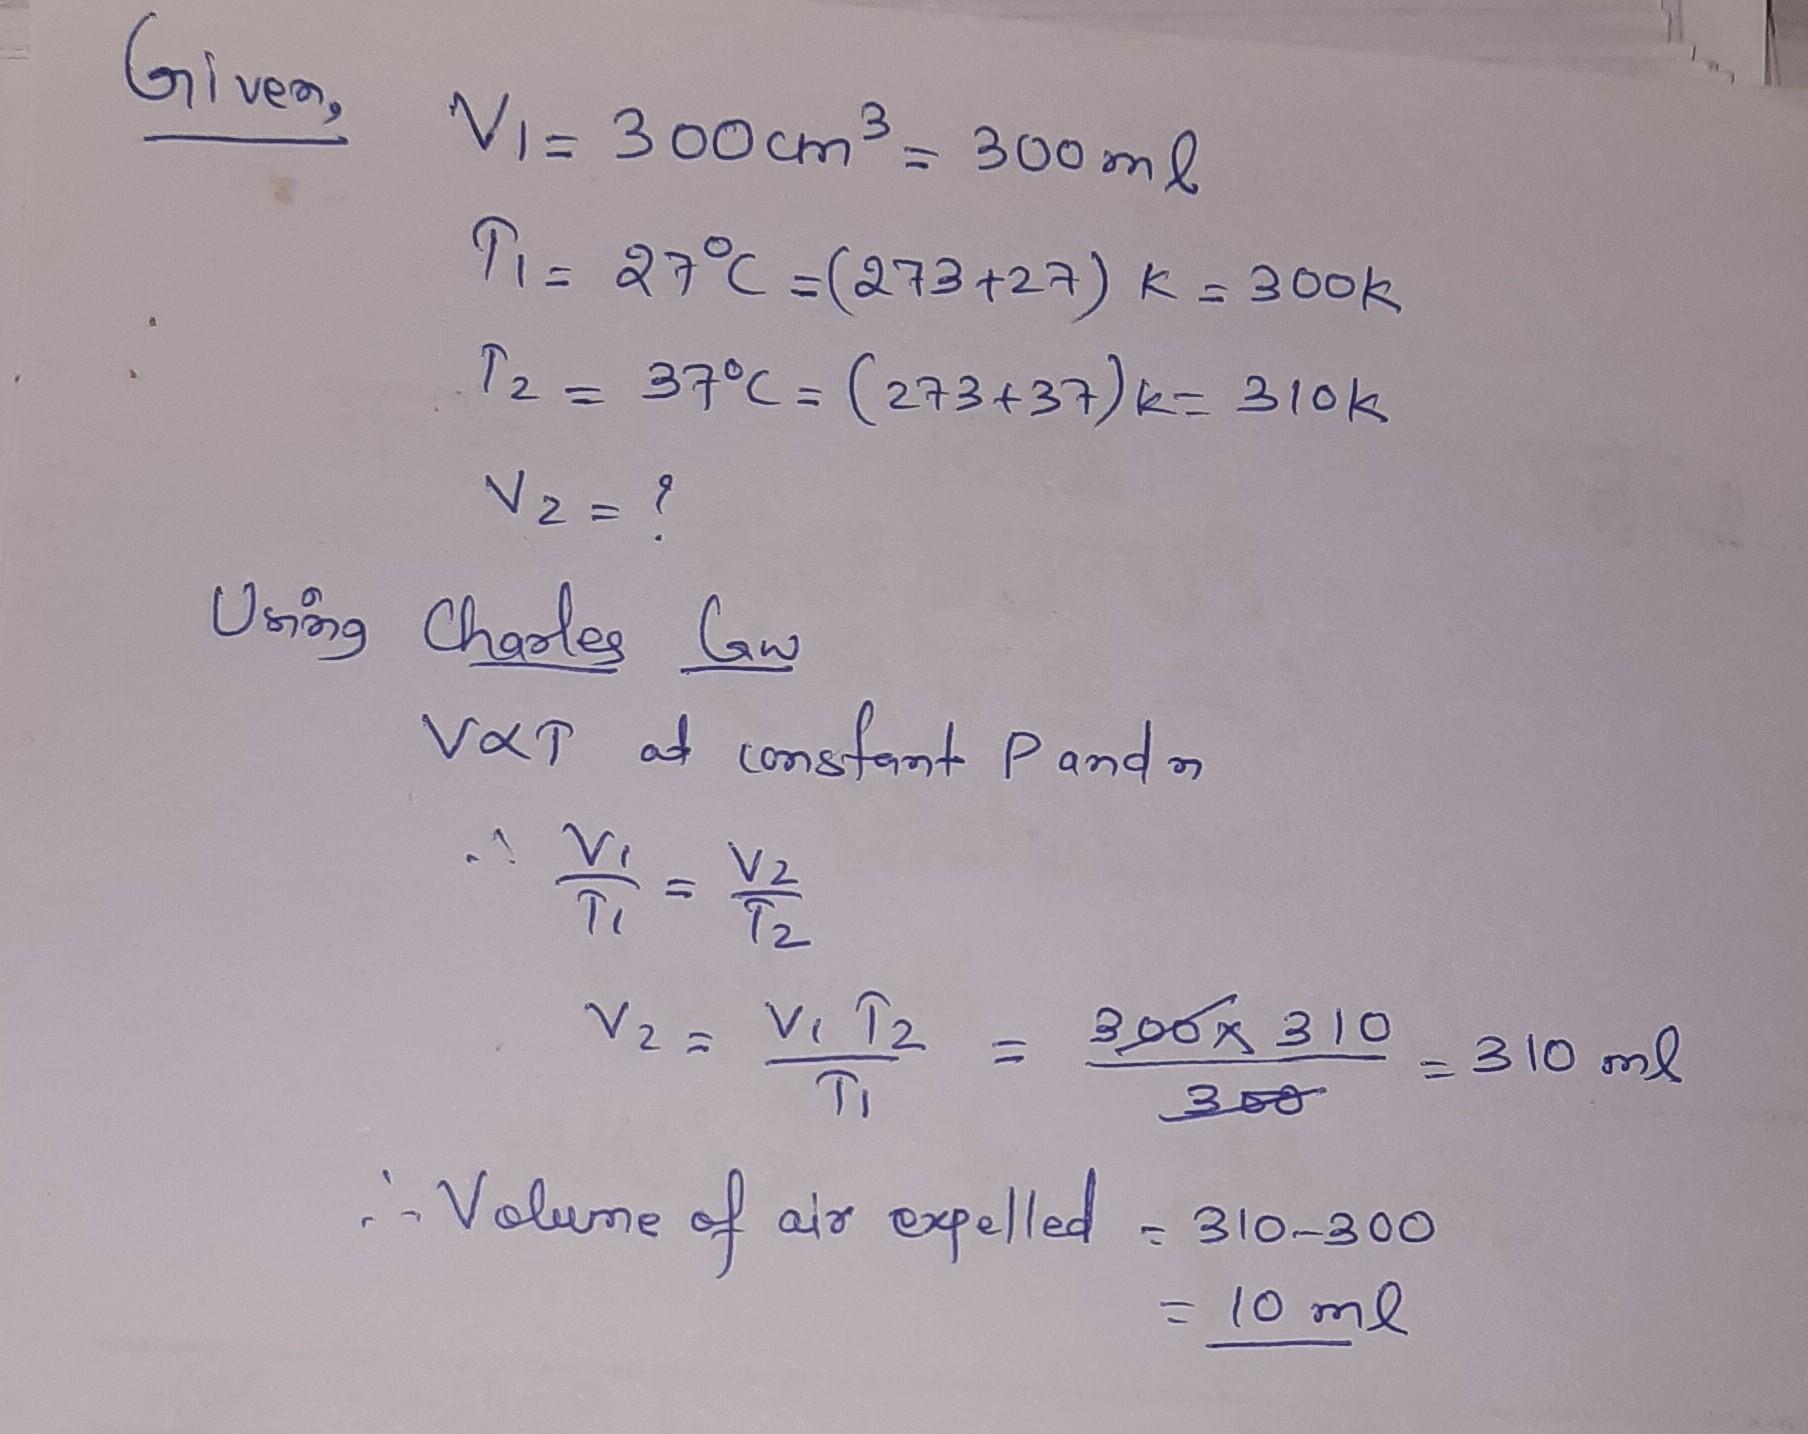 Given,
V1 = 300cm³ = 300 ml
T1 = 27°C = (273+27) K = 300K
T2 = 37°C = (273+37) K = 310K
V2 = ?
Using Charles law
V∝T at constant P and n
∴ V1/T1 = V2/T2
V2 = V1 T2/T1 = 300 x 310/300 = 310 ml
∴ Volume of air expelled = 310-300
= 10 ml